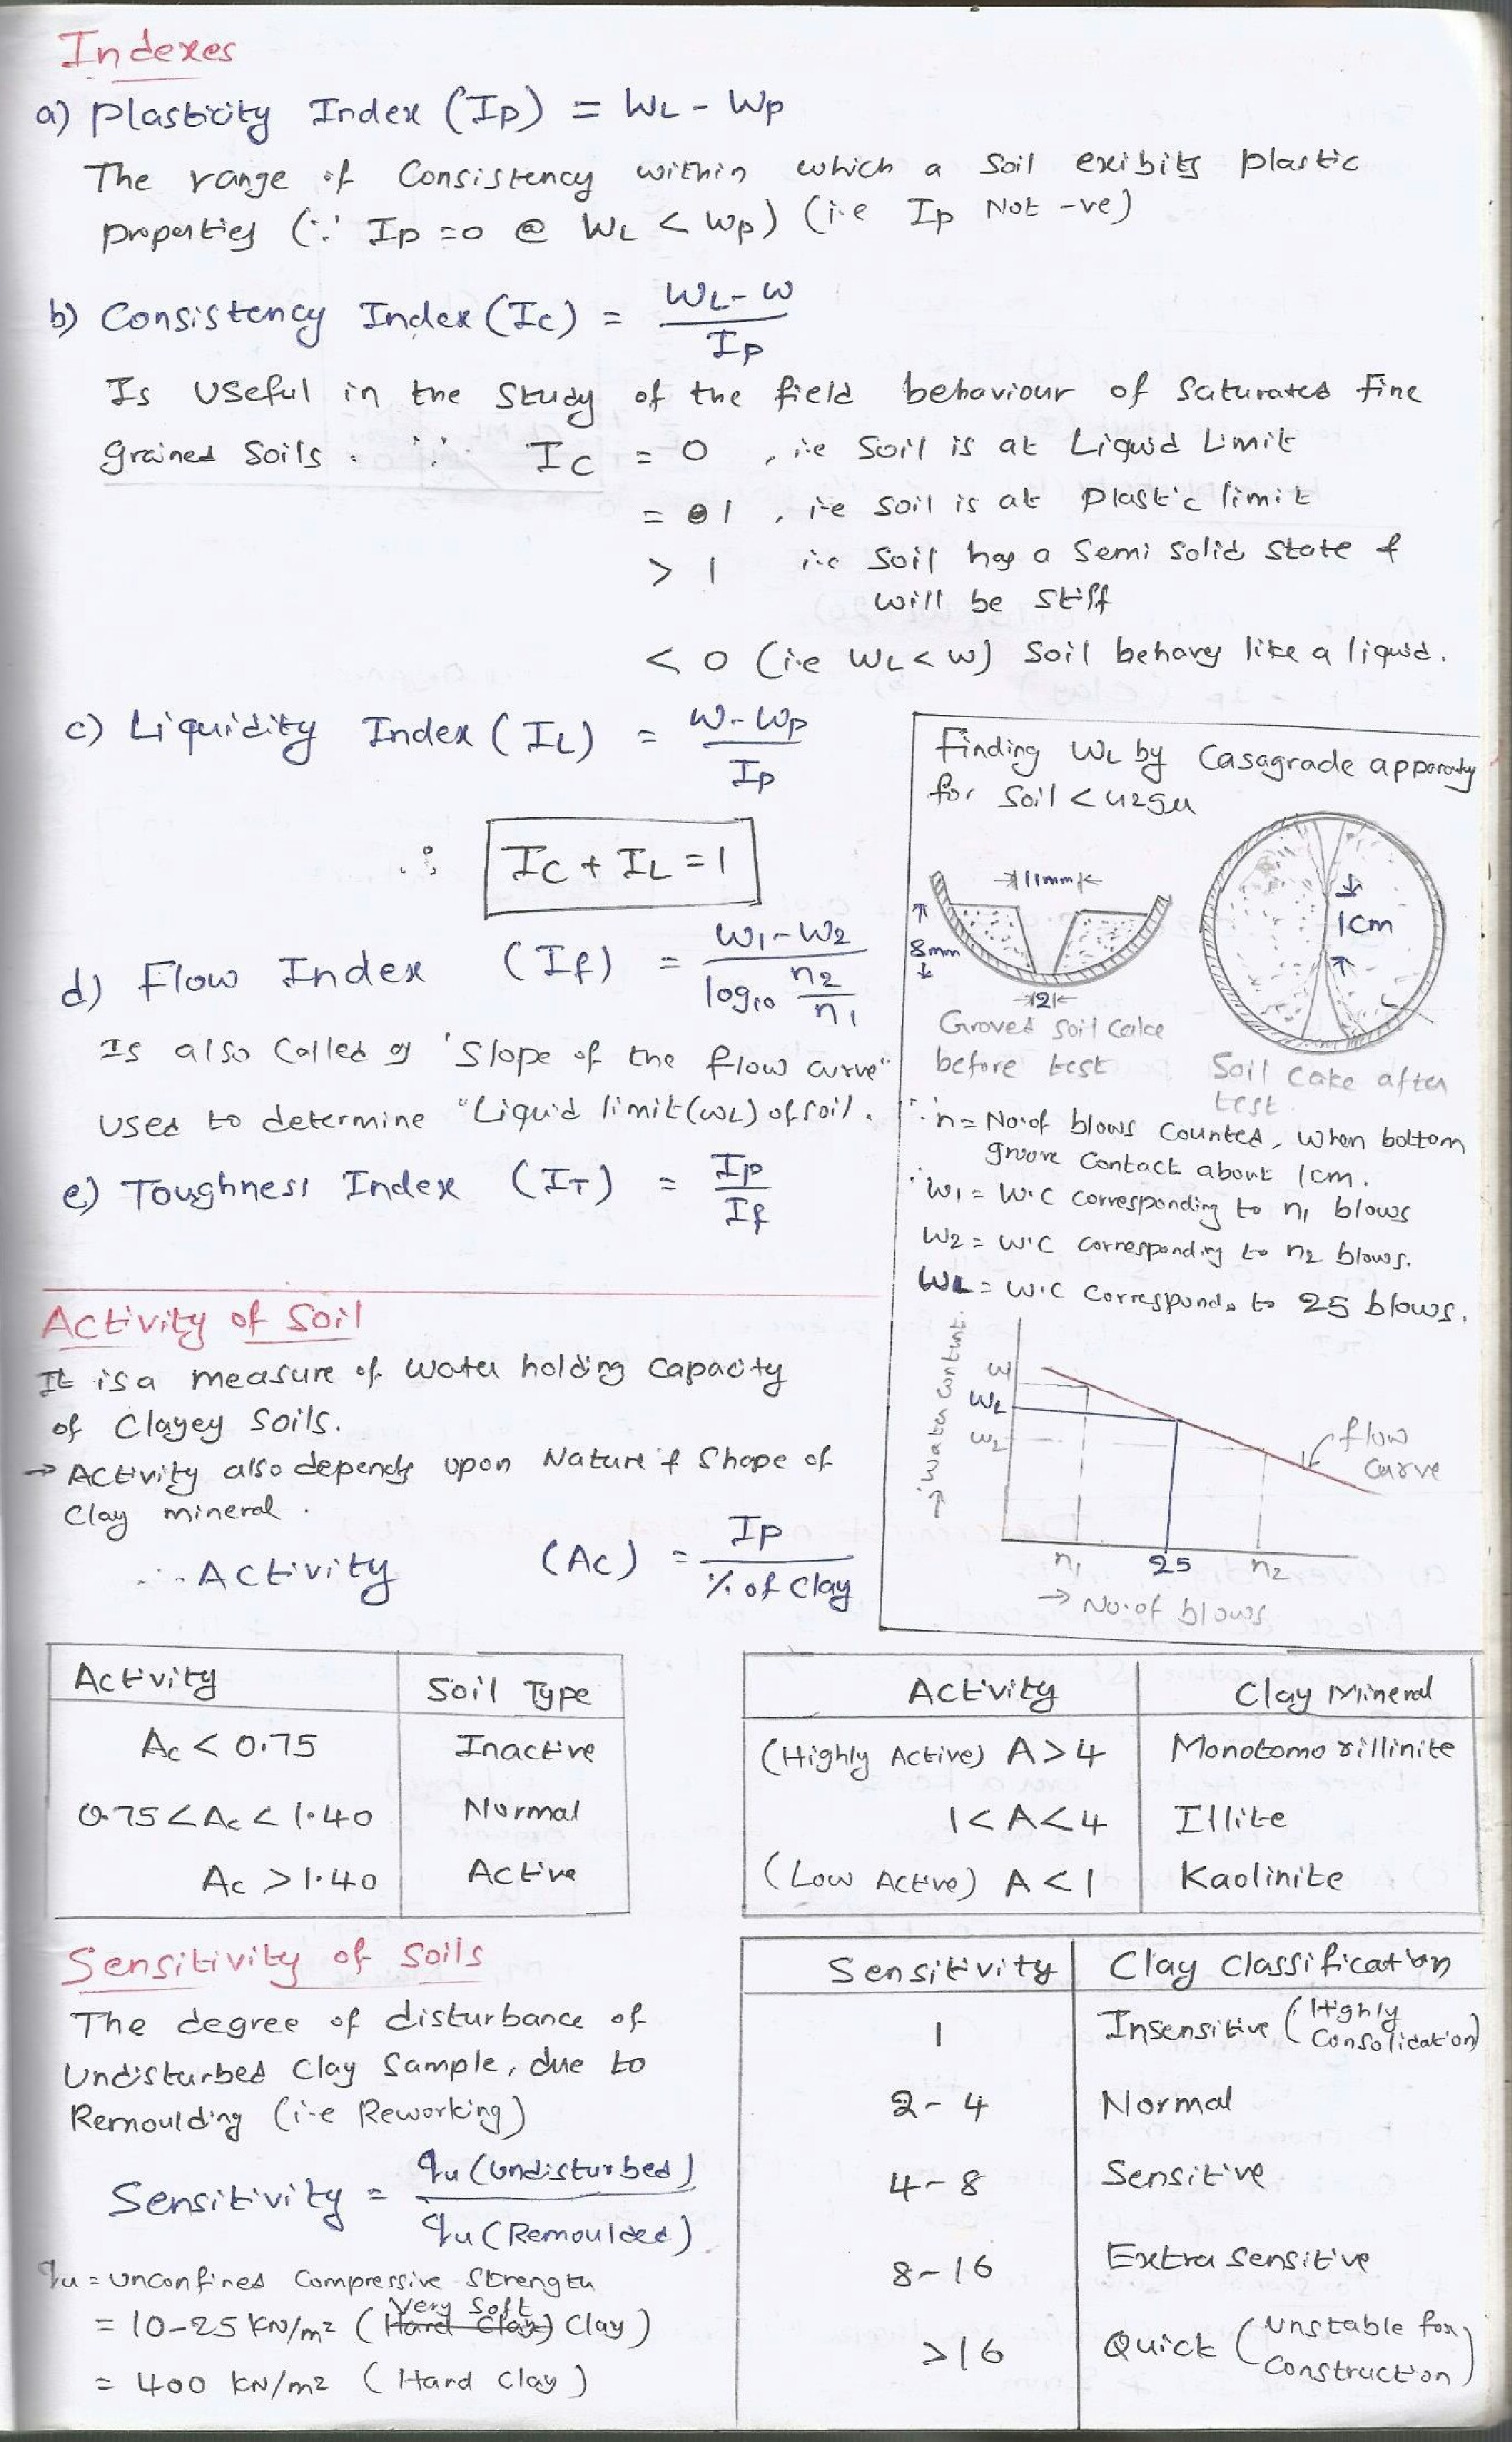 Indexes
a) Plasticity Index (Ip) = WL - Wp
The range of Consistency within which a Soil exibits plastic
properties (∵ Ip = 0 @ WL < Wp) (i.e Ip Not -ve)
b) Consistency Index (Ic) = WL - w / Ip
Is Useful in the Study of the field behaviour of Saturated fine
grained Soils. ∵ Ic = 0 , i.e Soil is at Liquid Limit
= 1 , i.e Soil is at Plastic limit
> 1 i.e Soil has a Semi Solid State &
will be Stiff
< 0 (i.e WL < W) Soil behavs like a liquid.
c) Liquidity Index (IL) = w - wp / Ip
∴ Ic + IL = 1
d) Flow Index (If) = w1 - w2 / log10 n2/n1
Is also Called as 'Slope of the flow curve"
Used to determine "Liquid limit (WL) of soil.
e) Toughness Index (IT) = Ip / If
Finding WL by Casagrade apparatus
for Soil < 425μ
11mm
8mm
2
1cm
Groved Soil Cake
before test
Soil Cake after
test
∵ n = No.of blows Counted, when bottom
groove Contact about 1cm.
∵ W1 = W.C Corresponding to n1 blows
W2 = W.C Corresponding to n2 blows.
WL = W.C Corresponds to 25 blows.
→ Water Content
w1
WL
w2
flow
Curve
n1 25 n2
→ No.of blows
Activity of Soil
It is a measure of Water holding Capacity
of Clayey Soils.
→ Activity also depends upon Nature & Shape of
Clay mineral.
∴ Activity (Ac) = Ip / % of Clay
Activity Soil Type
Ac < 0.75 Inactive
0.75 < Ac < 1.40 Normal
Ac > 1.40 Active
Activity Clay Mineral
(Highly Active) A > 4 Monotomorillinite
1 < A < 4 Illite
(Low Active) A < 1 Kaolinite
Sensitivity of Soils
The degree of disturbance of
Undisturbed Clay Sample, due to
Remoulding (i-e Reworking)
Sensitivity = qu (Undisturbed) / qu (Remoulded).
qu = Unconfined Compressive Strength
= 10-25 KN/m2 (Hard Clay) Very Soft Clay)
= 400 KN/m2 (Hard Clay)
Sensitivity Clay Classification
1 Insensitive (Highly Consolidation)
2-4 Normal
4-8 Sensitive
8-16 Extra Sensitive
>16 Quick (Unstable for Construction)